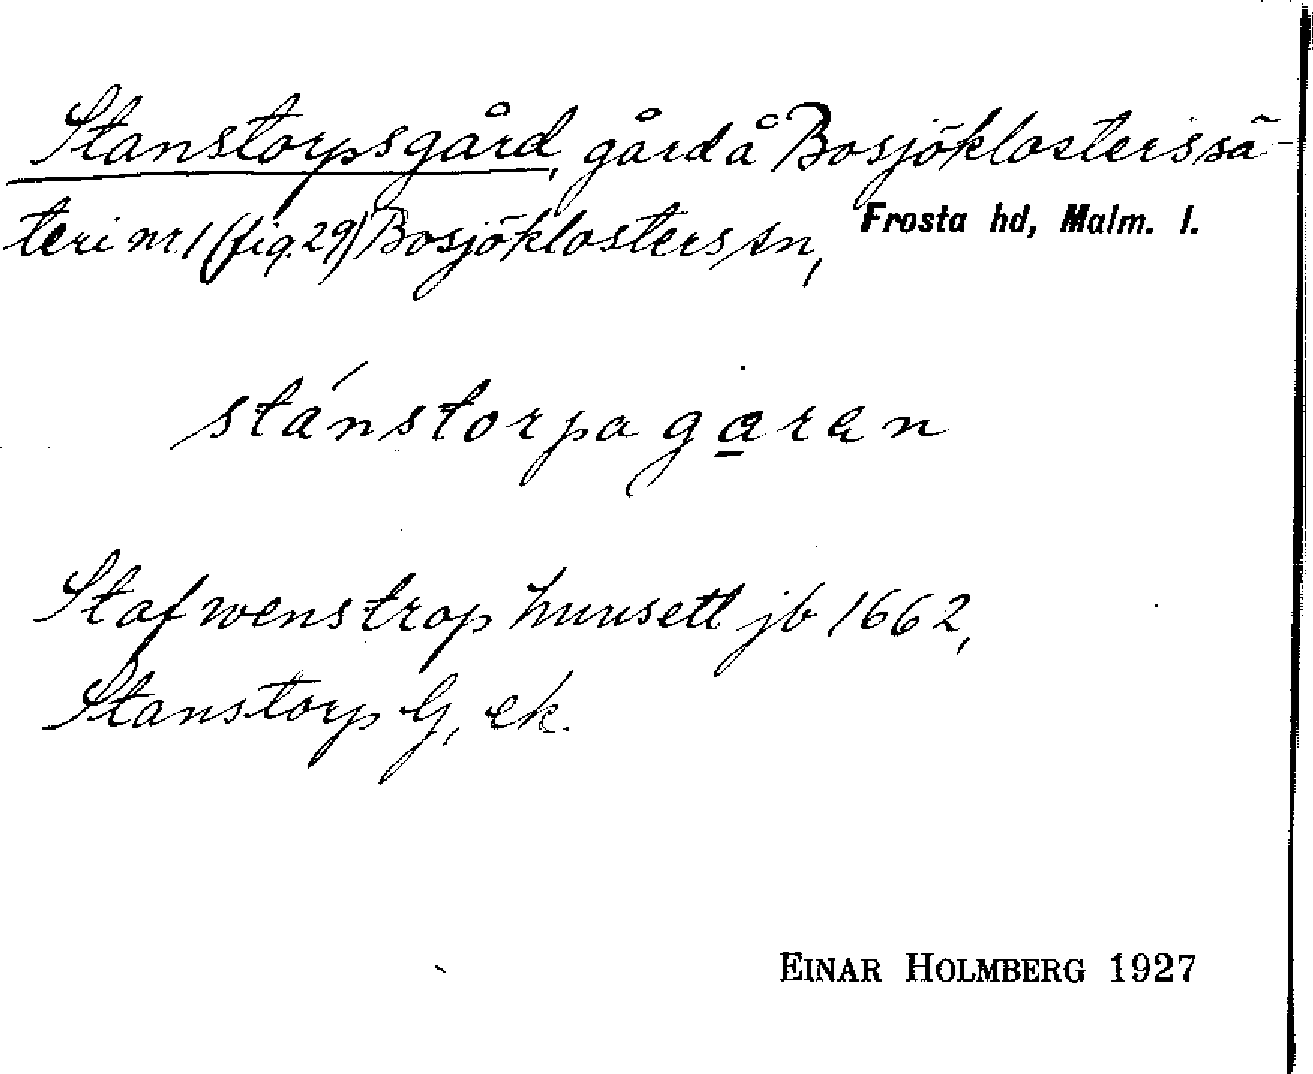 Stanstorpsgård, gård å Bosjöklosters sä-
teri nr 1 (fig. 29) Bosjöklosters sn, Frosta hd, Malm. l.
stánstorpagaran
Stafwenstrop huusett jb 1662,
Stanstorp G, ek.
EINAR HOLMBERG 1927